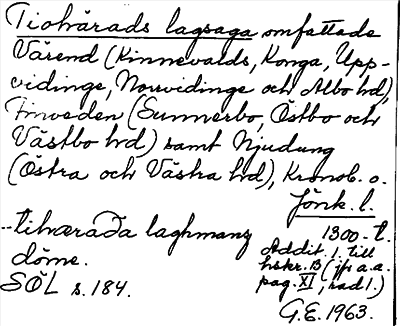 Tiohärads lagsaga omfattade
Värend (Kinnevalds, Konga, Upp-
vidinge, Norrvidinge och Albo hd),
Finveden (Sunnerbo, Östbo och
Västbo hd) samt Njudung
(Östra och Västra hd), Kronob. o.
Jönk. l.
--tihæraða laghmanz
döme.
SÖL s. 184.
1300-t.
Addit. 1. till
hskr. B (jfr a.a.
pag. XI, rad 1.)
G.E. 1963.